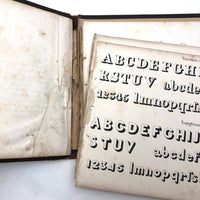 ABCDEFGHI
RSTUV abcdef
12345 lmnopqrs
ABCDEFGHIJ
STUV abcdef
12345 lmnopqrs